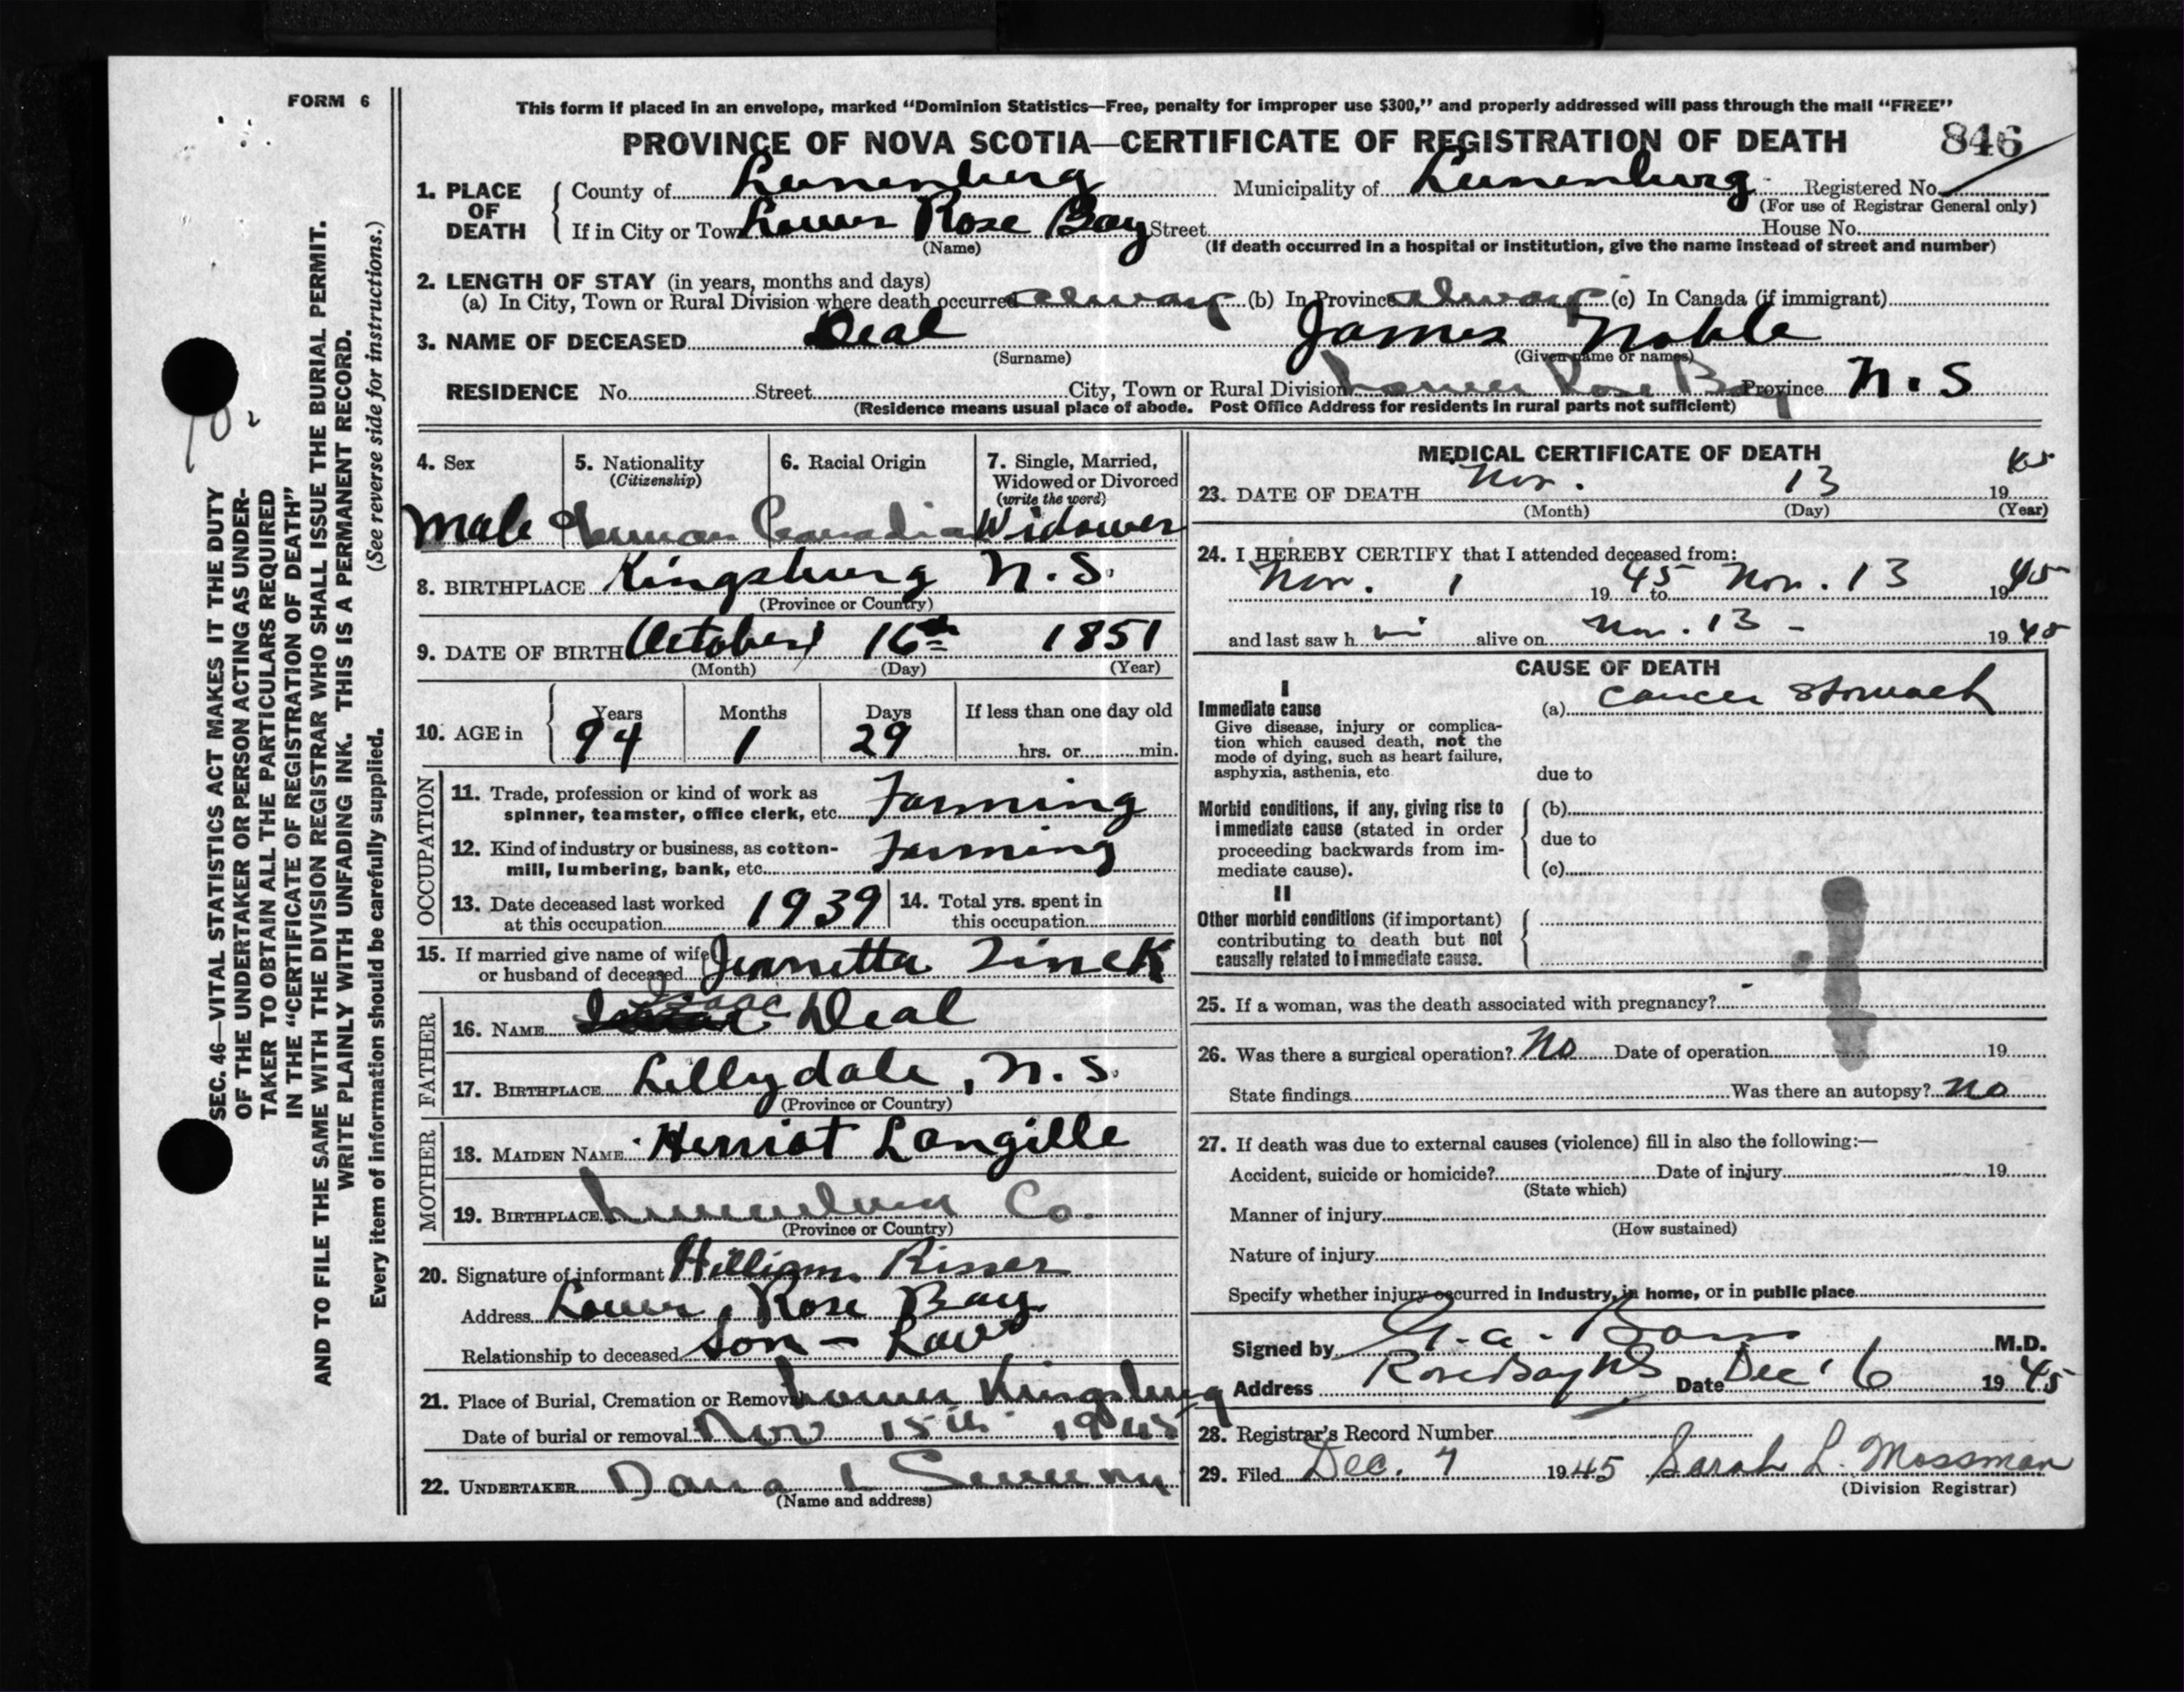 FORM 6
This form if placed in an envelope, marked “Dominion Statistics—Free, penalty for improper use $300,” and properly addressed will pass through the mail “FREE”
PROVINCE OF NOVA SCOTIA—CERTIFICATE OF REGISTRATION OF DEATH 846
1. PLACE OF DEATH County of Lunenburg Municipality of Lunenburg Registered No.
(For use of Registrar General only)
If in City or Town Lower Rose Bay Street House No.
(Name) (If death occurred in a hospital or institution, give the name instead of street and number)
2. LENGTH OF STAY (in years, months and days)
(a) In City, Town or Rural Division where death occurred always (b) In Province always (c) In Canada (if immigrant)
3. NAME OF DECEASED Deal James Noble
(Surname) (Given name or names)
RESIDENCE No. Street City, Town or Rural Division Lower Rose Bay Province N.S
(Residence means usual place of abode. Post Office Address for residents in rural parts not sufficient)
4. Sex 5. Nationality (Citizenship) 6. Racial Origin 7. Single, Married, Widowed or Divorced (write the word)
Male German Canadian Widower
8. BIRTHPLACE Kingsburg N.S.
(Province or Country)
9. DATE OF BIRTH October 16th 1851
(Month) (Day) (Year)
10. AGE in Years Months Days If less than one day old
94 1 29 hrs. or min.
OCCUPATION
11. Trade, profession or kind of work as
spinner, teamster, office clerk, etc. Farming
12. Kind of industry or business, as cotton-
mill, lumbering, bank, etc. Farming
13. Date deceased last worked at this occupation 1939 14. Total yrs. spent in this occupation
15. If married give name of wife
or husband of deceased Jennetta Zinck
FATHER
16. NAME Isaac Deal
17. BIRTHPLACE Lillydale, N.S.
(Province or Country)
MOTHER
18. MAIDEN NAME Herriot Langille
19. BIRTHPLACE Lunenburg Co.
(Province or Country)
20. Signature of informant William Risser
Address Lower Rose Bay
Relationship to deceased Son - Law
21. Place of Burial, Cremation or Removal Lower Kingsburg
Date of burial or removal Nov 15th 1945
22. UNDERTAKER Dana L Sweeny
(Name and address)
MEDICAL CERTIFICATE OF DEATH
23. DATE OF DEATH Nov. 13 1945
(Month) (Day) (Year)
24. I HEREBY CERTIFY that I attended deceased from:
Nov. 1 1945 to Nov. 13 1945
and last saw him alive on Nov. 13 - 1945
CAUSE OF DEATH
I
Immediate cause (a) cancer stomach
Give disease, injury or complica-
tion which caused death, not the
mode of dying, such as heart failure,
asphyxia, asthenia, etc due to
Morbid conditions, if any, giving rise to (b)
immediate cause (stated in order due to
proceeding backwards from im-
mediate cause). (c)
II
Other morbid conditions (if important)
contributing to death but not
causally related to immediate cause.
25. If a woman, was the death associated with pregnancy? -
26. Was there a surgical operation? No Date of operation 19
State findings Was there an autopsy? No
27. If death was due to external causes (violence) fill in also the following:—
Accident, suicide or homicide? Date of injury 19
(State which)
Manner of injury
(How sustained)
Nature of injury
Specify whether injury occurred in Industry, in home, or in public place
Signed by G.A. M.D.
Address Rose Bay NS Date Dec. 6 1945
28. Registrar's Record Number
29. Filed Dec. 7 1945 Sarah L. Mossman
(Division Registrar)
SEC. 46—VITAL STATISTICS ACT MAKES IT THE DUTY
OF THE UNDERTAKER OR PERSON ACTING AS UNDER-
TAKER TO OBTAIN ALL THE PARTICULARS REQUIRED
IN THE “CERTIFICATE OF REGISTRATION OF DEATH”
AND TO FILE THE SAME WITH THE DIVISION REGISTRAR WHO SHALL ISSUE THE BURIAL PERMIT.
WRITE PLAINLY WITH UNFADING INK. THIS IS A PERMANENT RECORD.
Every item of information should be carefully supplied. (See reverse side for instructions.)